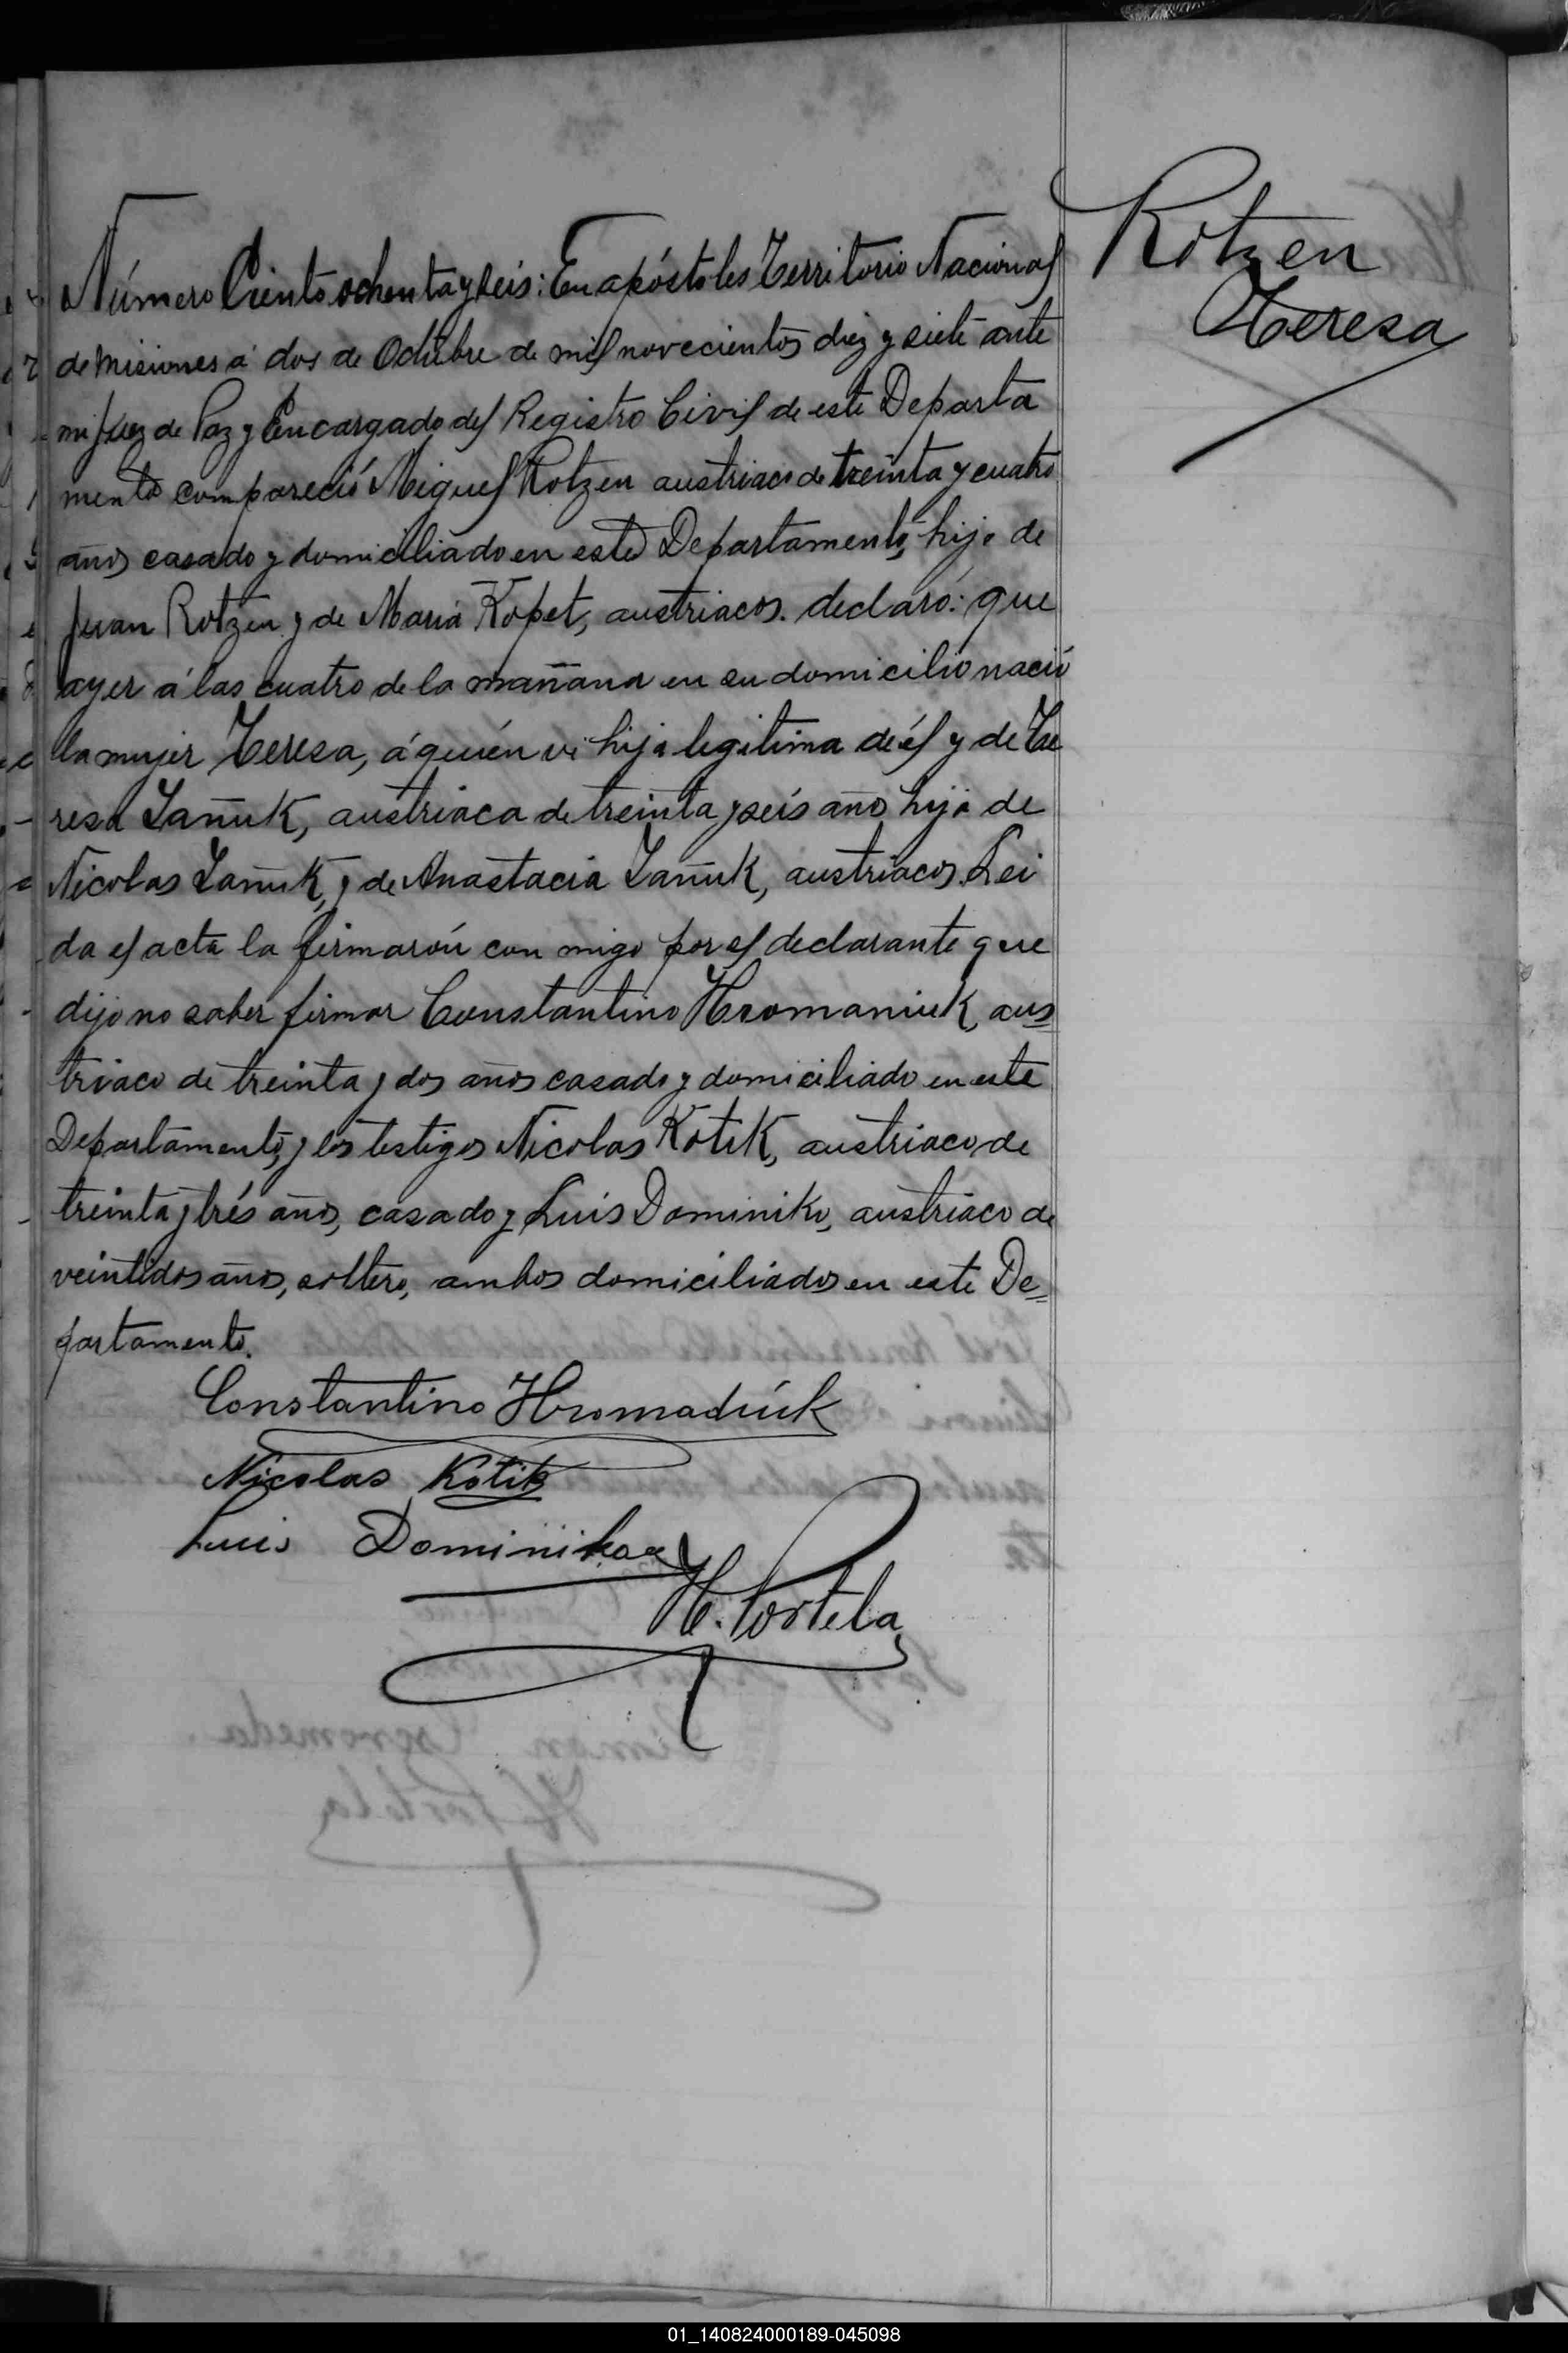 Rotzen
Teresa
Número Ciento ochenta y seis: En apóstoles Territorio Nacional
de Misiones á dos de Octubre de mil novecientos diez y siete ante
mi Juez de Paz y Encargado del Registro Civil de este Departa
mento compareció Miguel Rotzen austriaco de treinta y cuatro
años casado y domiciliado en este Departamento, hijo de
Juan Rotzen y de Maria Kopet, austriacos. declaró: que
ayer á las cuatro de la mañana en su domicilio nació
la mujer Teresa, á quién vi hija legitima de él y de Te
resa Zañuk, austriaca de treinta y seis años, hija de
Nicolas Zañuk, y de Anastacia Zañuk, austriacos. Lei
da el acta la firmarón con migo por el declarante que
dijo no saber firmar Constantino Hromaniuk, aus
triaco de treinta y dos años casado y domiciliado en este
Departamento, y los testigos Nicolas Kotik, austriaco de
treinta y trés años, casado y Luis Dominiko, austriaco de
veintidos años, soltero, ambos domiciliados en este De=
partamento.
Constantino Hromadiúk
Nicolas Kotik
Luis
H. Portela
01_140824000189-045098